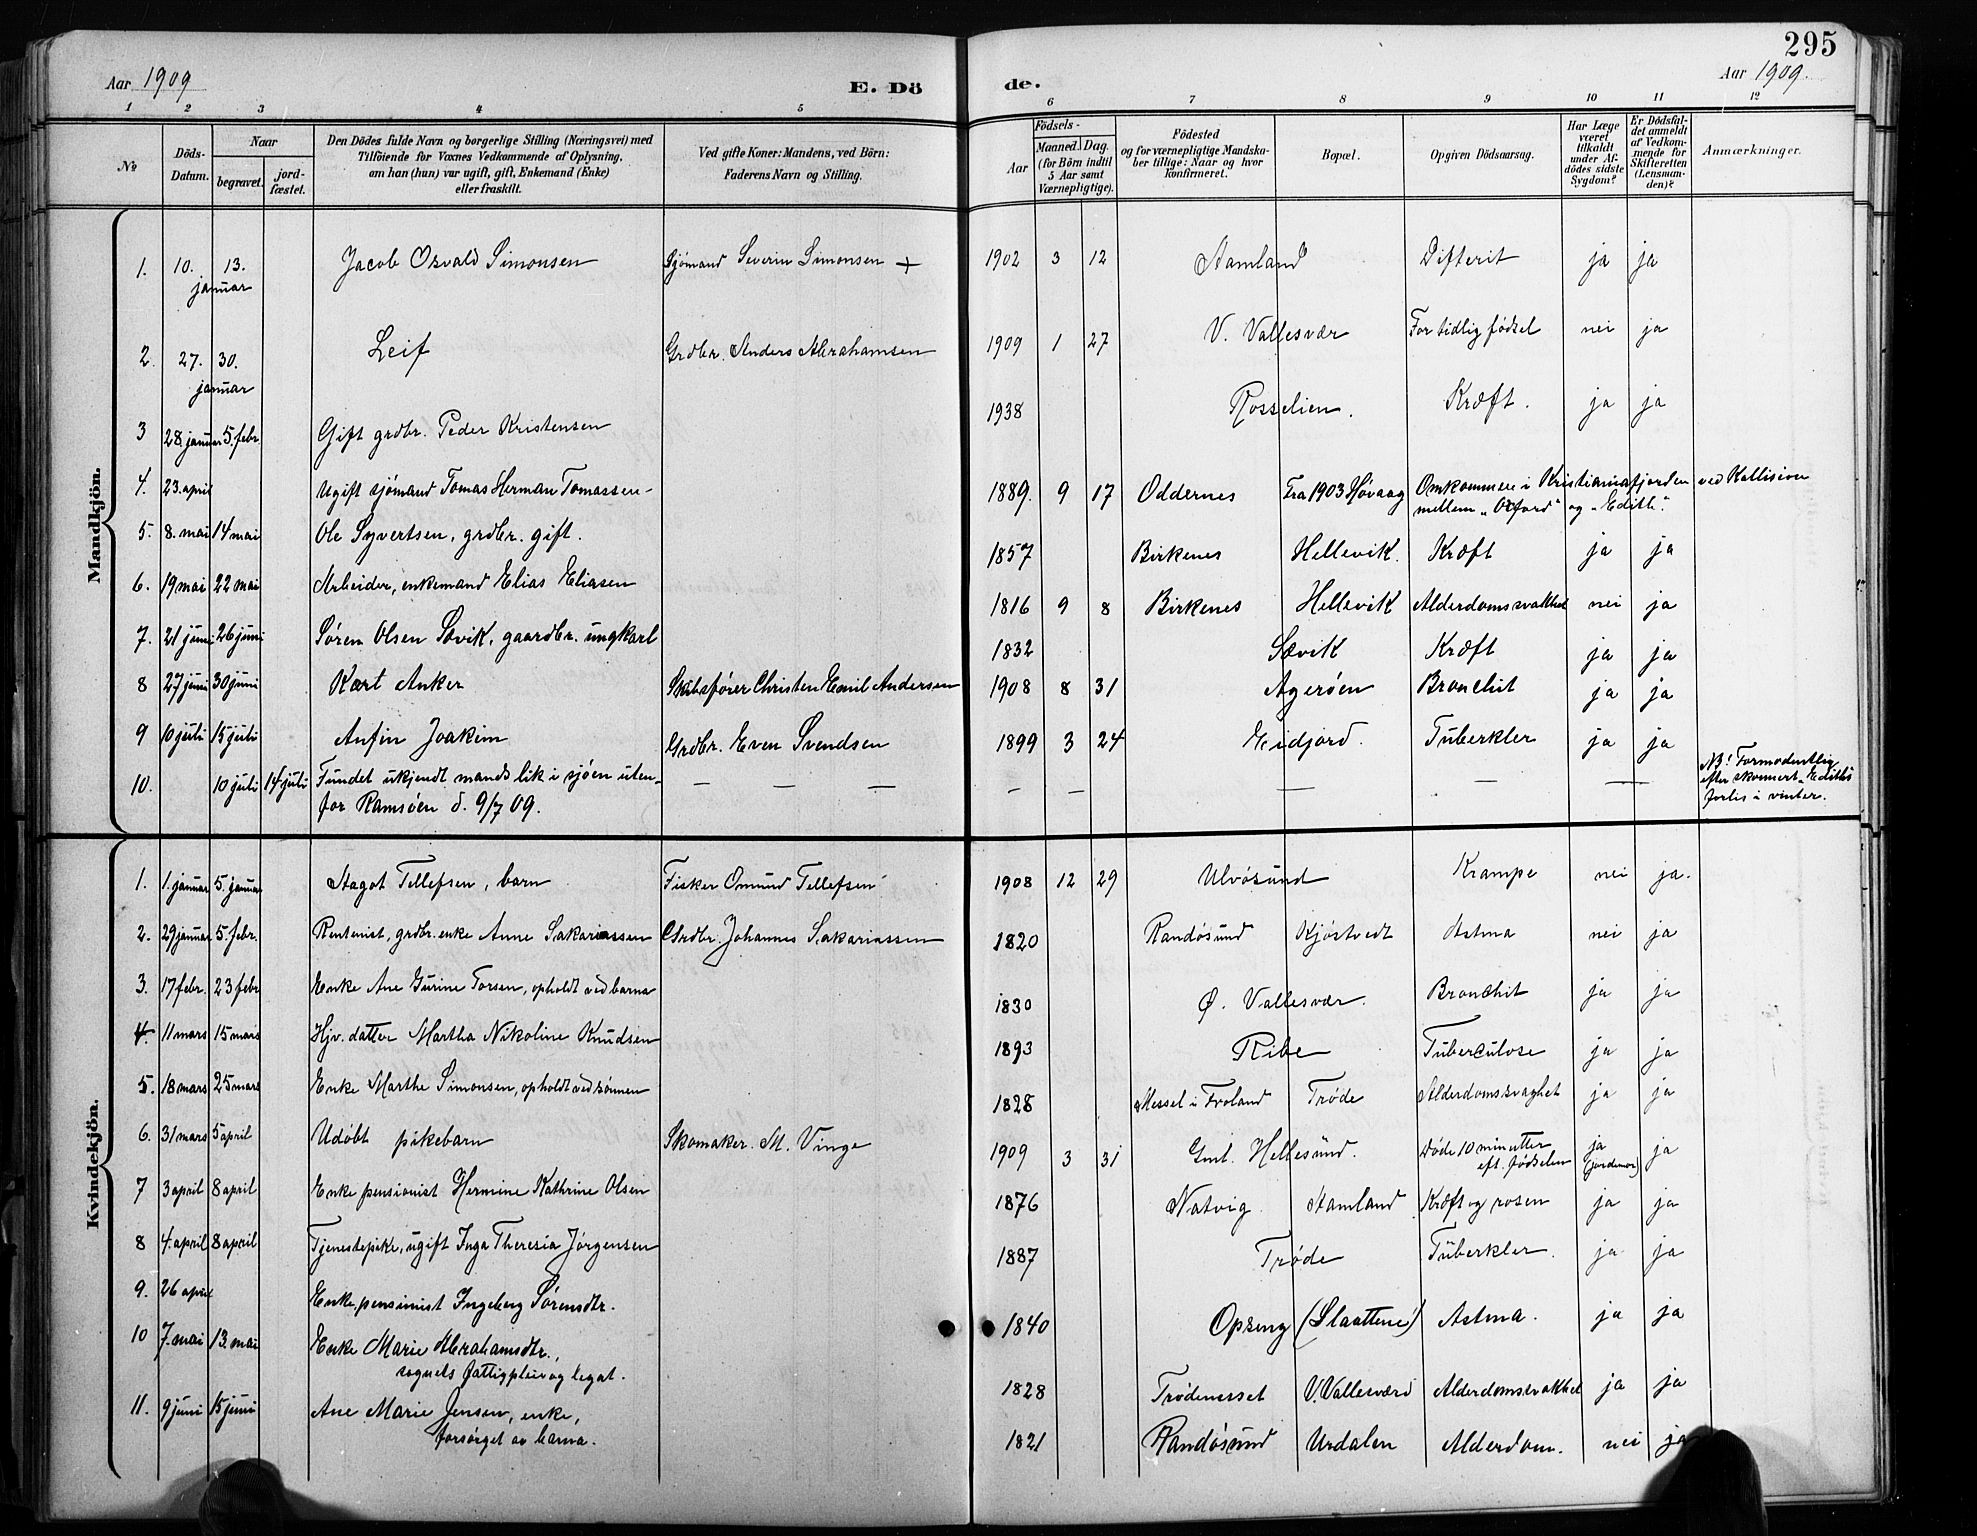 295
Aar 1909
E. Dö
de.
Aar 1909.
1 2 3 4 5 6 7 8 9 10 11 12
No
Döds-Datum.
Naar
begravet.
jord-fæstet.
Den Dödes fulde Navn og borgerlige Stilling (Næringsvei) med
Tilföiende for Voxnes Vedkommende af Oplysning,
om han (hun) var ugift, gift, Enkemand (Enke)
eller fraskilt.
Ved gifte Koner: Mandens, ved Börn:
Faderens Navn og Stilling.
Födsels-
Aar
Maaned. Dag.
(for Börn indtil
5 Aar samt
Værnepligtige).
Födested
og for værnepligtige Mandska-
ber tillige: Naar og hvor
konfirmeret.
Bopæl.
Opgiven Dödsaarsag.
Har Læge
været
tilkaldt
under Af-
dödes sidste
Sygdom?
Er Dödsfal-
det anmeldt
af Vedkom-
mende for
Skifteretten
(Lensman-
den)?
Anmærkninger.
Mandkjön.
1. 10. 13. januar Jacob Osvald Simonsen Sjömand Severin Simonsen + 1902 3 12 Aamland Difterit ja ja
2. 27. 30. januar Leif Grdbr. Anders Abrahamsen 1909 1 27 V. Vallesvær For tidlig födsel nei ja
3 28. januar 5. febr. Gift grdbr. Peder Kristensen 1938 Rosselien. Kræft. ja ja
4. 23. april Ugift sjömand Tomas Herman Tomassen 1889. 9 17 Oddernes Fra 1903 Hövaag Omkommen i Kristianiafjorden ved Kollision
mellem "Oxford" og "Edith".
5. 8. mai 14 mai Ole Syvertsen, grdbr. gift. 1857 Birkenes Hellevik. Kræft ja ja
6. 19 mai 22 mai Arbeider, enkemand Elias Eliasen 1816 9 8 Birkenes Hellevik Alderdomssvakhet nei ja
7. 21 juni 26 juni Sören Olsen Sævik, gaardbr. ungkarl 1832 Sævik Kræft ja ja
8 27 juni 30 juni Kart Anker Skibsförer Christen Emil Andersen 1908 8 31 Agerøen Bronchit ja ja
9 10 juli 15 juli Anfin Joakim Grdbr. Even Svendsen 1899 3 24 Eidjord. Tuberkler ja ja
10. 10 juli 14 juli Fundet ukjendt mands lik i sjöen uten-
for Ramsöen d. 9/7 09. — — — — — — — — NB! Formodentlig
efter skonnert "Edith's
forlis i vinter.
Kvindekjön.
1. 1. januar 5. januar Aagot Tellefsen, barn Fisker Omund Tellefsen 1908 12 29 Ulvösund Krampe nei ja.
2. 29 januar 5. febr. Rentenist, grdbr. enke Anne Sakariassen Grdbr. Johannes Sakariassen 1820 Randösund Kjöstvedt Astma nei ja
3. 17 febr. 23 febr Enke Ane Gurine Torsen, opholdt ved barna 1830 Ø. Vallesvær. Bronchit ja ja
4. 11 mars 15 mars Hjv. datter Martha Nikoline Knudsen 1893 Ribe Tuberculose ja ja
5. 18 mars 25 mars Enke Marthe Simonsen, opholdt ved sönnen 1828 Messel i Froland Trøde Alderdomssvaghet ja ja
6. 31 mars 5 april Udöbt pikebarn Skomaker M. Vinge 1909 3 31 Gml. Hellesund. Döde 10 minutter
eft. födselen ja
(jordemor) ja
7 3 april 8 april Enke pensionist Hermine Kathrine Olsen 1876 Natvig Aamland Kræft og rosen ja ja
8 4. april 8 april Tjenestepike, ugift Inga Theresia Jörgensen 1887 Trøde Tuberkler. ja ja
9. 26 april Enke, pensionist Ingeborg Sörensdtr. 1840 Opseng (Slaattene) Astma. ja ja
10 7. mai 13. mai Enke Marie Abrahamsdtr.,
sognets fattigpleie og legat. 1828 Trødenesset V. Vallesværd Alderdomssvakhet ja ja
11. 9 juni 15 juni Ane Marie Jensen, enke,
forsörget av barna. 1821 Randösund Urdalen Alderdom. nei ja